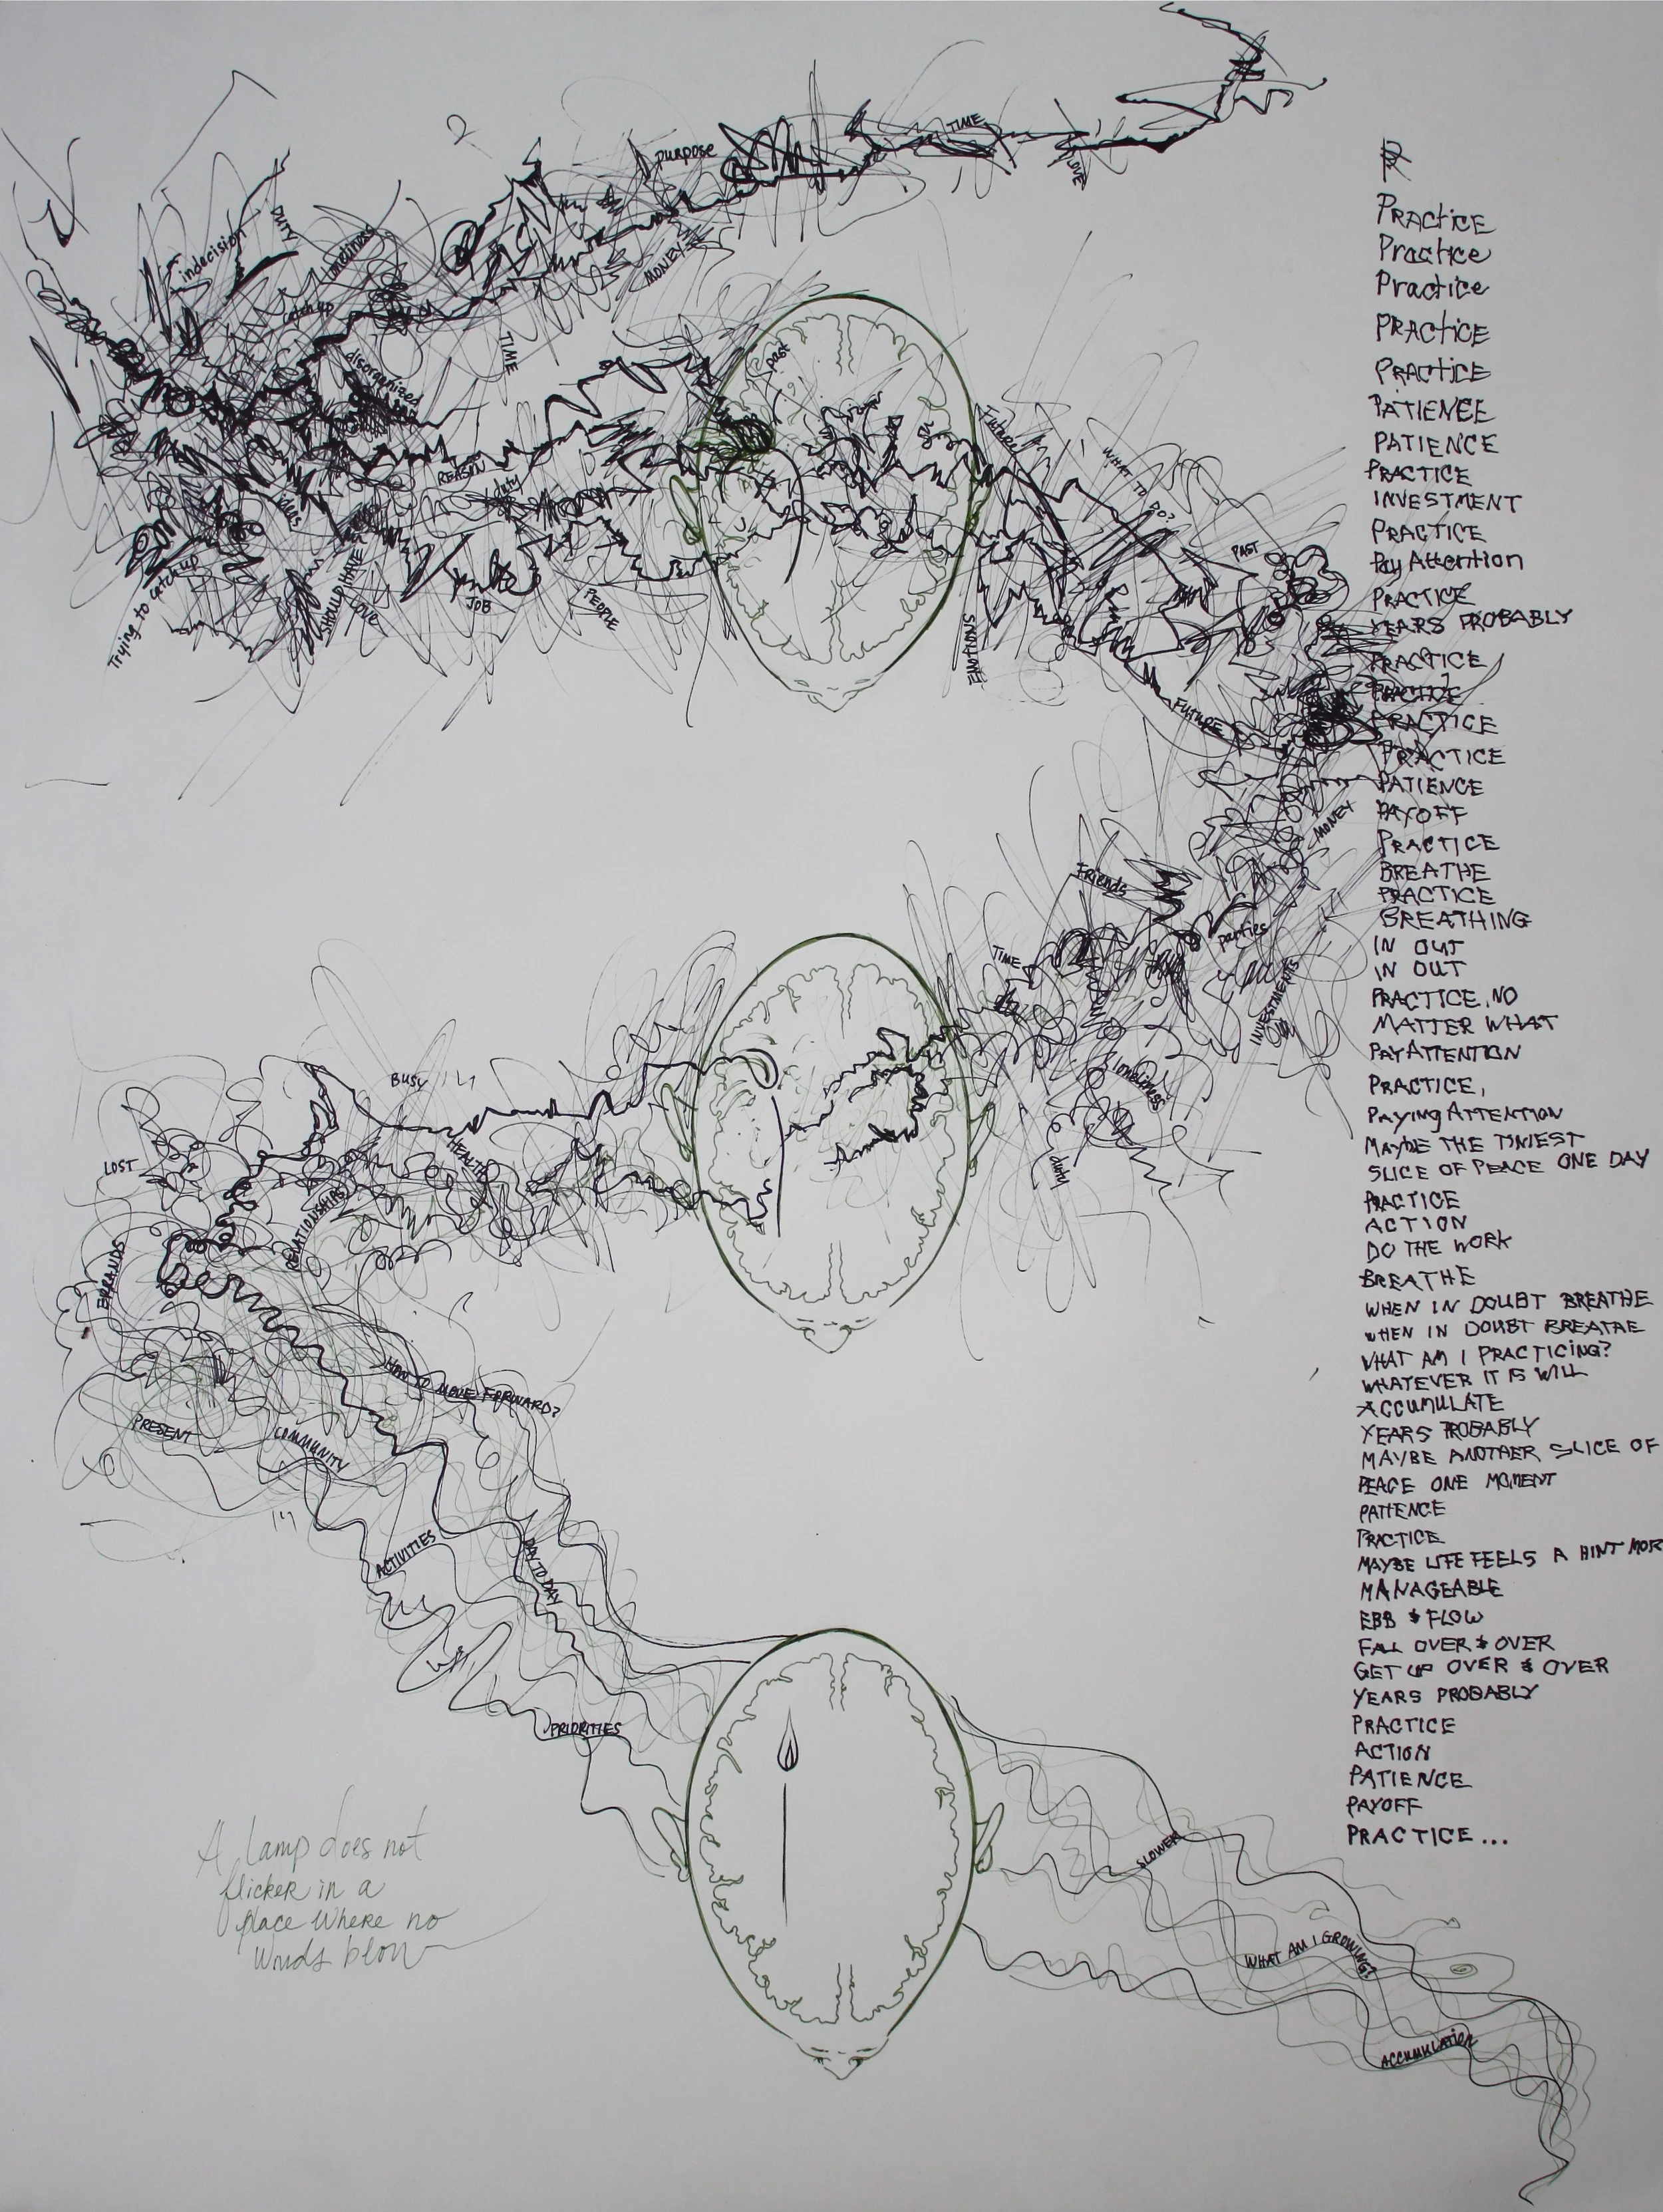 TIME
LOVE
purpose
MONEY
DUTY
indecision
loneliness
catch up
TIME
disorganized
past
REASON
duty
ideas
Trying to catch up
SHOULD HAVE
LOVE
JOB
PEOPLE
Future
WHAT TO DO?
PAST
EMOTIONS
FUTURE
MONEY
Friends
parties
TIME
INVESTMENTS
loneliness
BUSY
HEALTH
LOST
RELATIONSHIPS
ERRANDS
HOW TO MOVE FORWARD?
PRESENT
COMMUNITY
ACTIVITIES
DAY TO DAY
PRIORITIES
SLOWER
WHAT AM I GROWING?
ACCUMULATION
A lamp does not
flicker in a
place where no
winds blow
PRACTICE
Practice
Practice
PRACTICE
PRACTICE
PATIENCE
PATIENCE
PRACTICE
INVESTMENT
PRACTICE
Pay Attention
PRACTICE
YEARS PROBABLY
PRACTICE
PRACTICE
PRACTICE
PRACTICE
PATIENCE
PAYOFF
PRACTICE
BREATHE
PRACTICE
BREATHING
IN OUT
IN OUT
PRACTICE, NO
MATTER WHAT
PAY ATTENTION
PRACTICE,
PAYING ATTENTION
MAYBE THE TINIEST
SLICE OF PEACE ONE DAY
PRACTICE
ACTION
DO THE WORK
BREATHE
WHEN IN DOUBT BREATHE
WHEN IN DOUBT BREATHE
WHAT AM I PRACTICING?
WHATEVER IT IS WILL
ACCUMULATE
YEARS PROBABLY
MAYBE ANOTHER SLICE OF
PEACE ONE MOMENT
PATIENCE
PRACTICE
MAYBE LIFE FEELS A HINT MOR
MANAGEABLE
EBB & FLOW
FALL OVER & OVER
GET UP OVER & OVER
YEARS PROBABLY
PRACTICE
ACTION
PATIENCE
PAYOFF
PRACTICE...